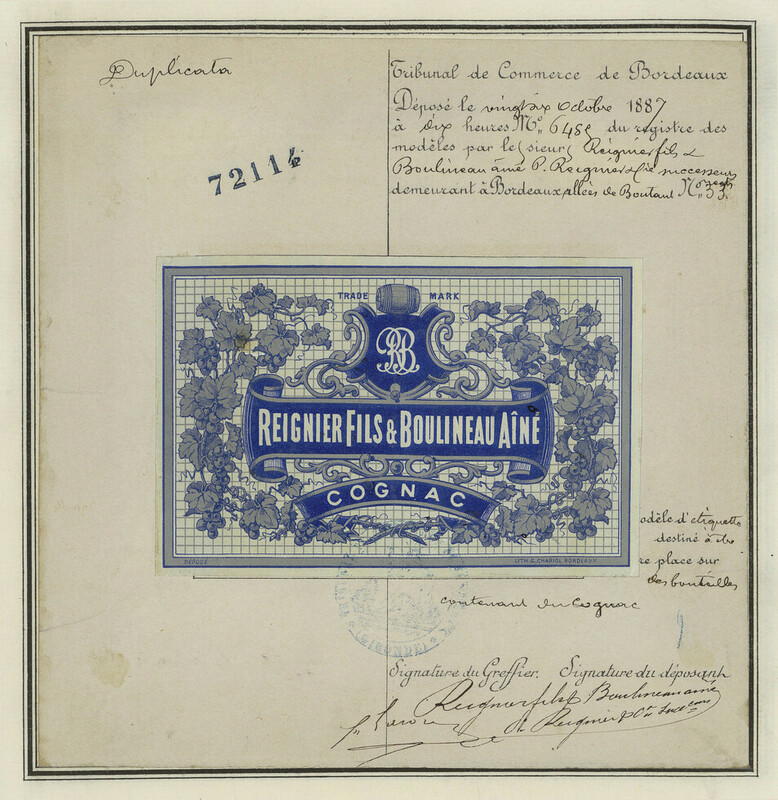 Duplicata
72114
Tribunal de Commerce de Bordeaux
Déposé le vingt six Octobre 1887
à dix heures N° 6485 du registre des
modèles par le sieurs Reignier fils &
Boulineau ainé P. Reignier & Cie successeurs
demeurant à Bordeaux allées de Boutaut N° 33
TRADE MARK
RB
REIGNIER FILS & BOULINEAU AÎNÉ
COGNAC
DÉPOSÉ
LITH. G. CHARIOL BORDEAUX
odèle d'étiquette
destiné à être
re place sur
des bouteilles
contenant du Cognac
(GIRONDE)
Signature du Greffier. Signature du déposant
Reignier fils & Boulineau ainé
P. Reignier & Cie Succeurs